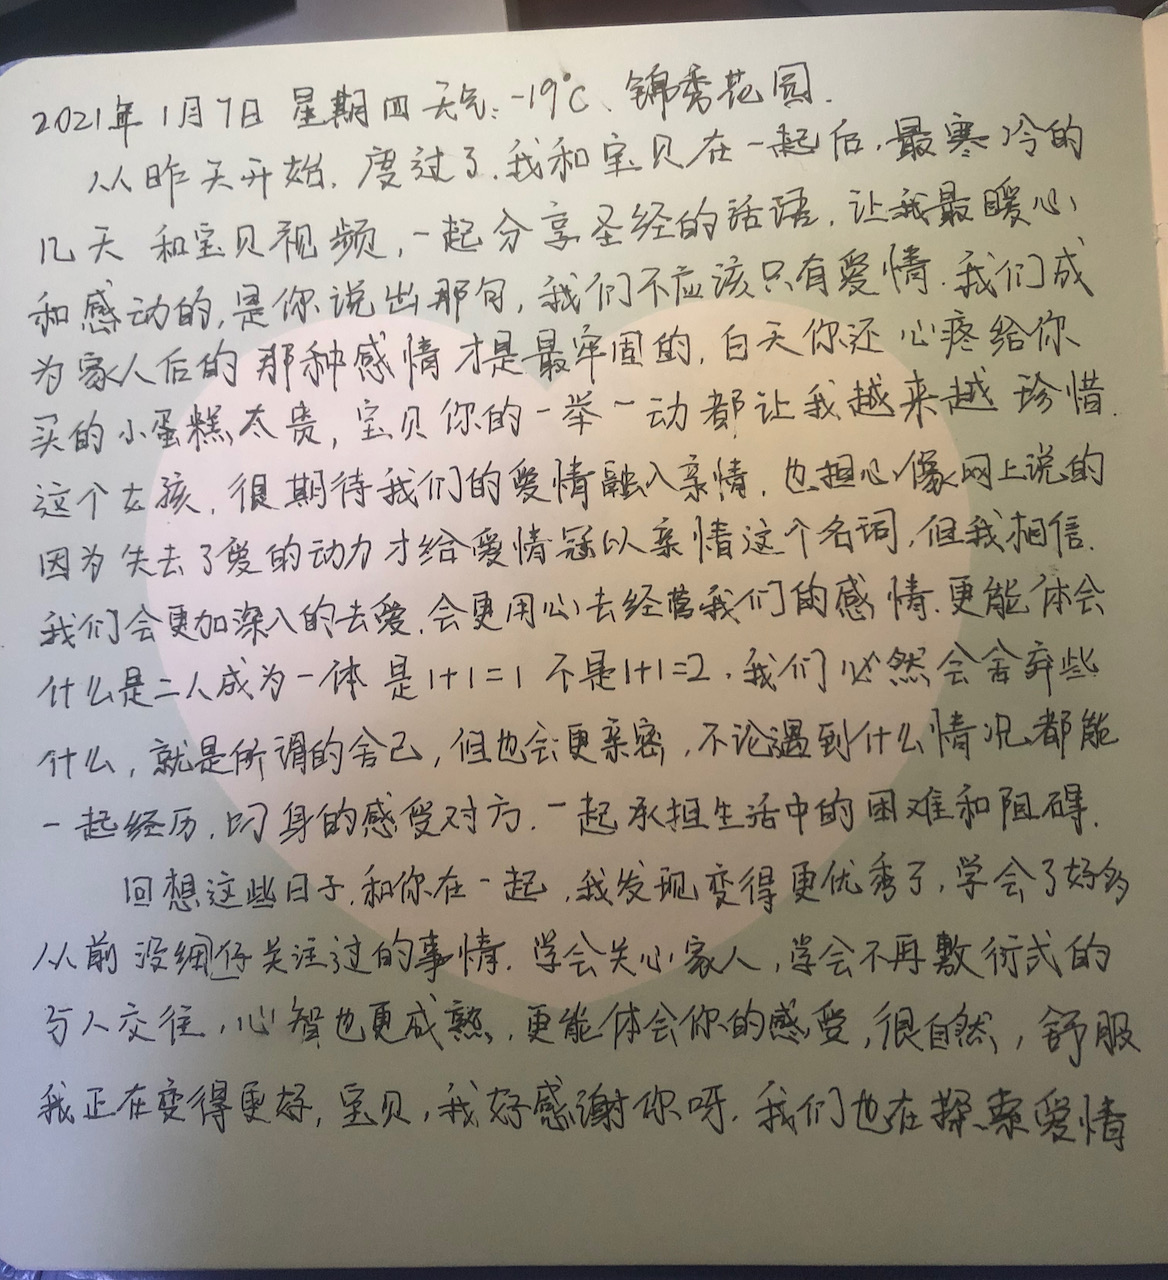 2021年1月7日 星期四 天气:-19℃、锦秀花园.
从昨天开始.度过了.我和宝贝在一起后.最寒冷的
几天 和宝贝视频,一起分享圣经的话语.让我最暖心
和感动的,是你说出那句,我们不应该只有爱情.我们成
为家人后的那种感情才是最牢固的.白天你还心疼给你
买的小蛋糕太贵,宝贝你的一举一动都让我越来越珍惜.
这个女孩,很期待我们的爱情融入亲情.也担心像网上说的
因为失去了爱的动力才给爱情冠以亲情这个名词,但我相信.
我们会更加深入的去爱.会更用心去经营我们的感情.更能体会
什么是二人成为一体 是1+1=1 不是1+1=2.我们必然会舍弃些
什么,就是所谓的舍己,但也会更亲密,不论遇到什么情况都能
一起经历.切身的感受对方.一起承担生活中的困难和阻碍.
回想这些日子.和你在一起,我发现变得更优秀了,学会了好多
从前没细仔关注过的事情.学会关心家人,学会不再敷衍式的
与人交往,心智也更成熟,更能体会你的感受,很自然,舒服
我正在变得更好,宝贝,我好感谢你呀.我们也在探索爱情